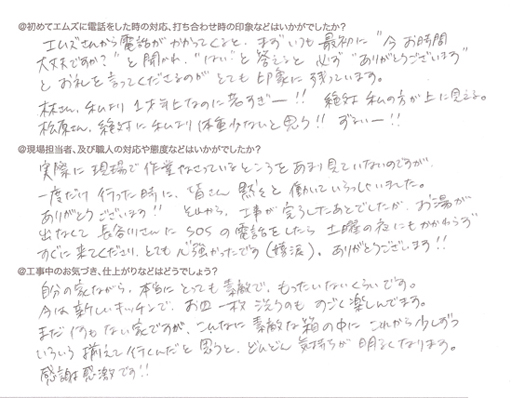 @初めてエムズに電話をした時の対応、打ち合わせ時の印象などはいかがでしたか?
エムズさんから電話がかかってくると、まずいつも最初に"今お時間
大丈夫ですか?"と聞かれ、"はい"と答えると必ず"ありがとうございます"
とお礼を言ってくださるのがとても印象に残っています。
林さん、私より1才年上なのに若すぎー!! 絶対私の方が上に見える。
松原さん、絶対に私より体重少ないと思う!! ずるいー!!
@現場担当者、及び職人の対応や態度などはいかがでしたか?
実際に現場で作業なさっているところをあまり見ていないのですが、
一度だけ行った時に、皆さん黙々と働いていらっしゃいました。
ありがとうございます!! それから、工事が完了したあとでしたが、お湯が
出なくて長谷川さんにSOSの電話をしたら土曜の夜にもかかわらず
すぐに来てくださり、とても心強かったです(嬉涙)。ありがとうございます!!
@工事中のお気づき、仕上がりなどはどうでしょう?
自分の家ながら、本当にとっても素敵で、もったいないくらいです。
今は新しいキッチンで、お皿一枚洗うのもすごく楽しんでます。
まだ何もない家ですが、こんなに素敵な箱の中にこれから少しずつ
いろいろ揃えて行くんだと思うと、どんどん気持ちが明るくなります。
感謝感激です!!